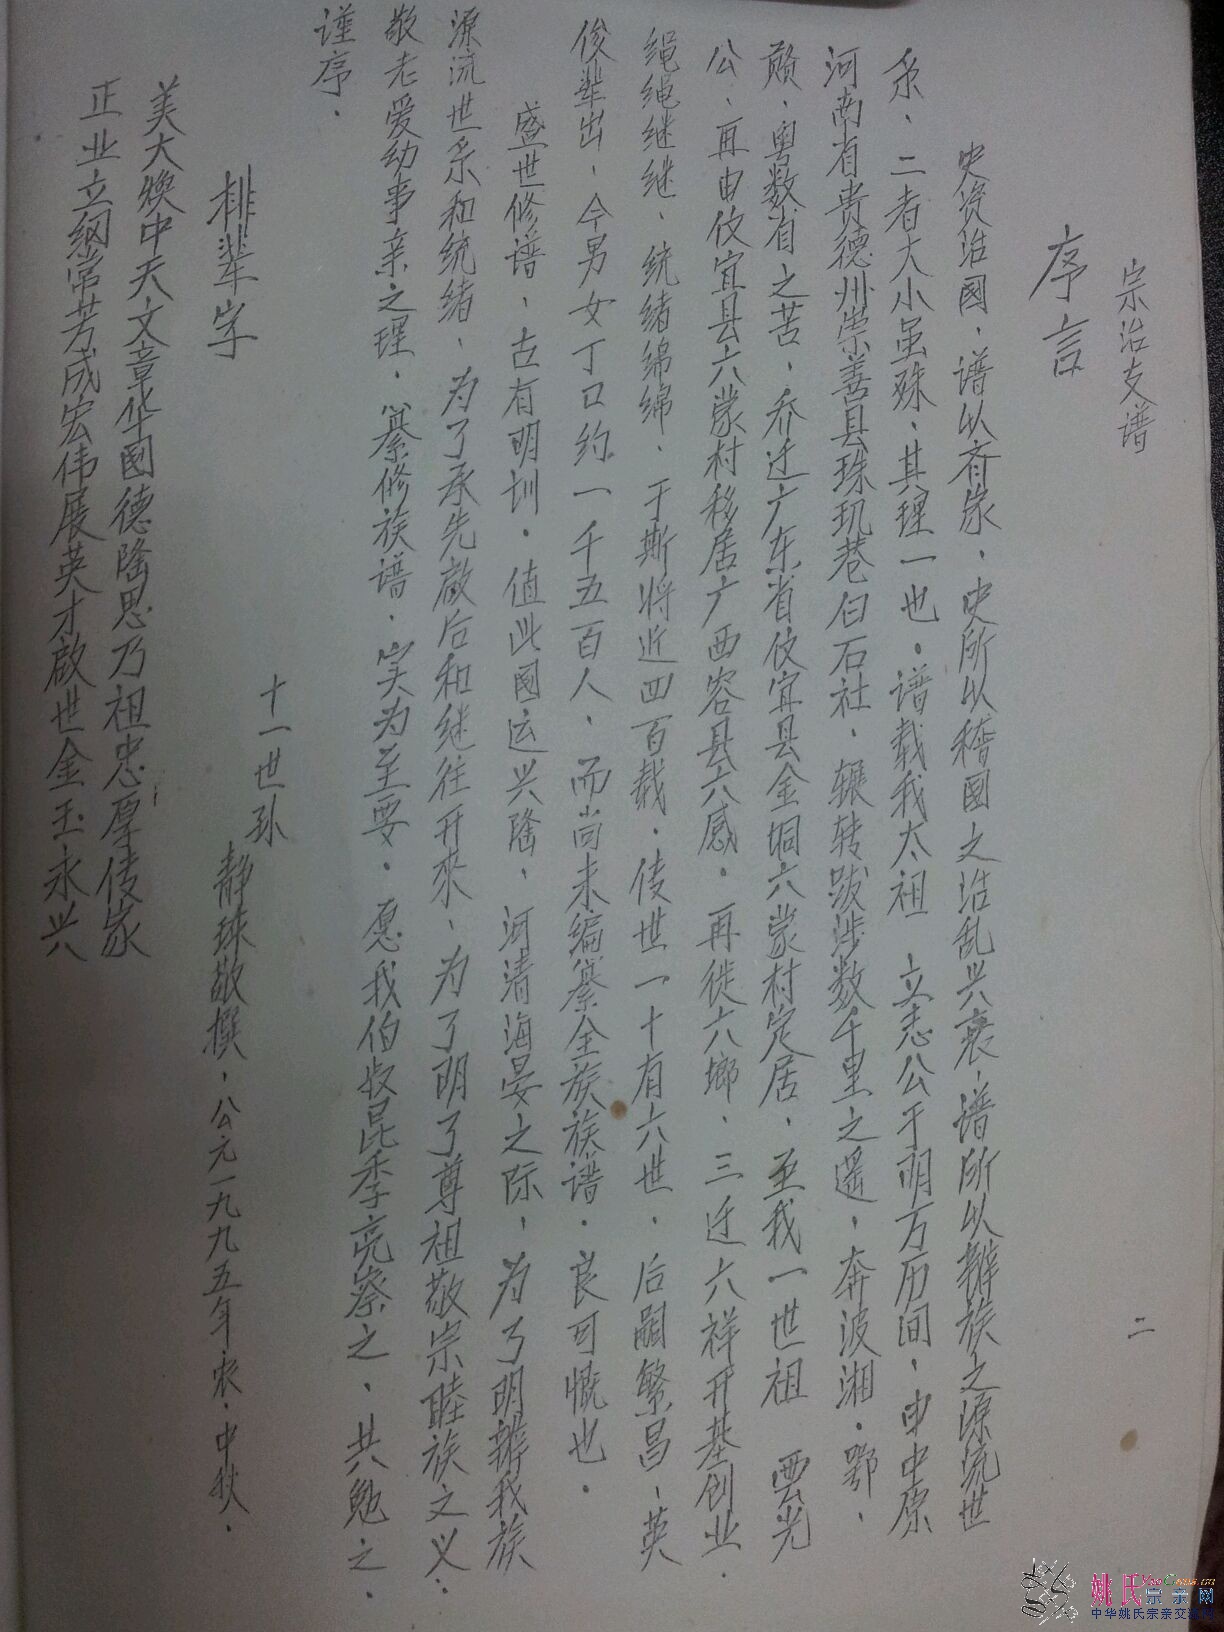 宗治支谱
二
序言
史资治國、谱以齐家、史所以稽國之治乱兴衰、谱所以辨族之源流世
系、二者大小虽殊、其理一也。谱载我太祖 立志公于明万历间、由中原
河南省贵德州崇善县珠玑巷白石社、辗转跋涉数千里之遥、奔波湘、鄂、
赣、粤数省之苦、乔迁广东省伩宜县金垌六蒙村定居、至我一世祖 雲光
公、再由伩宜县六蒙村移居广西容县六感、再徙六塘、三迁六祥开基创业、
绳绳继继、统绪绵绵、于斯将近四百载、传世一十有六世、后嗣繁昌、英
俊辈出、今男女丁口约一千五百人、而尚未编纂全族族谱、良可慨也。
盛世修谱、古有明训。值此國运兴隆、河清海晏之际、为了明辨我族
源流世系和统绪、为了承先啟后和继往开來、为了明了尊祖敬宗睦族之义:
敬老爱幼事亲之理、纂修族谱、实为至要。愿我伯叔昆季亮察之、共勉之、
谨序.
十一世孙
静球敬撰、公元一九九五年农、中秋.
排辈字
美大焕中天文章华國德隆思乃祖忠厚传家
正业立纲常芳成宏伟展英才啟世金玉永兴
姚氏宗亲网
中华姚氏宗亲交流网